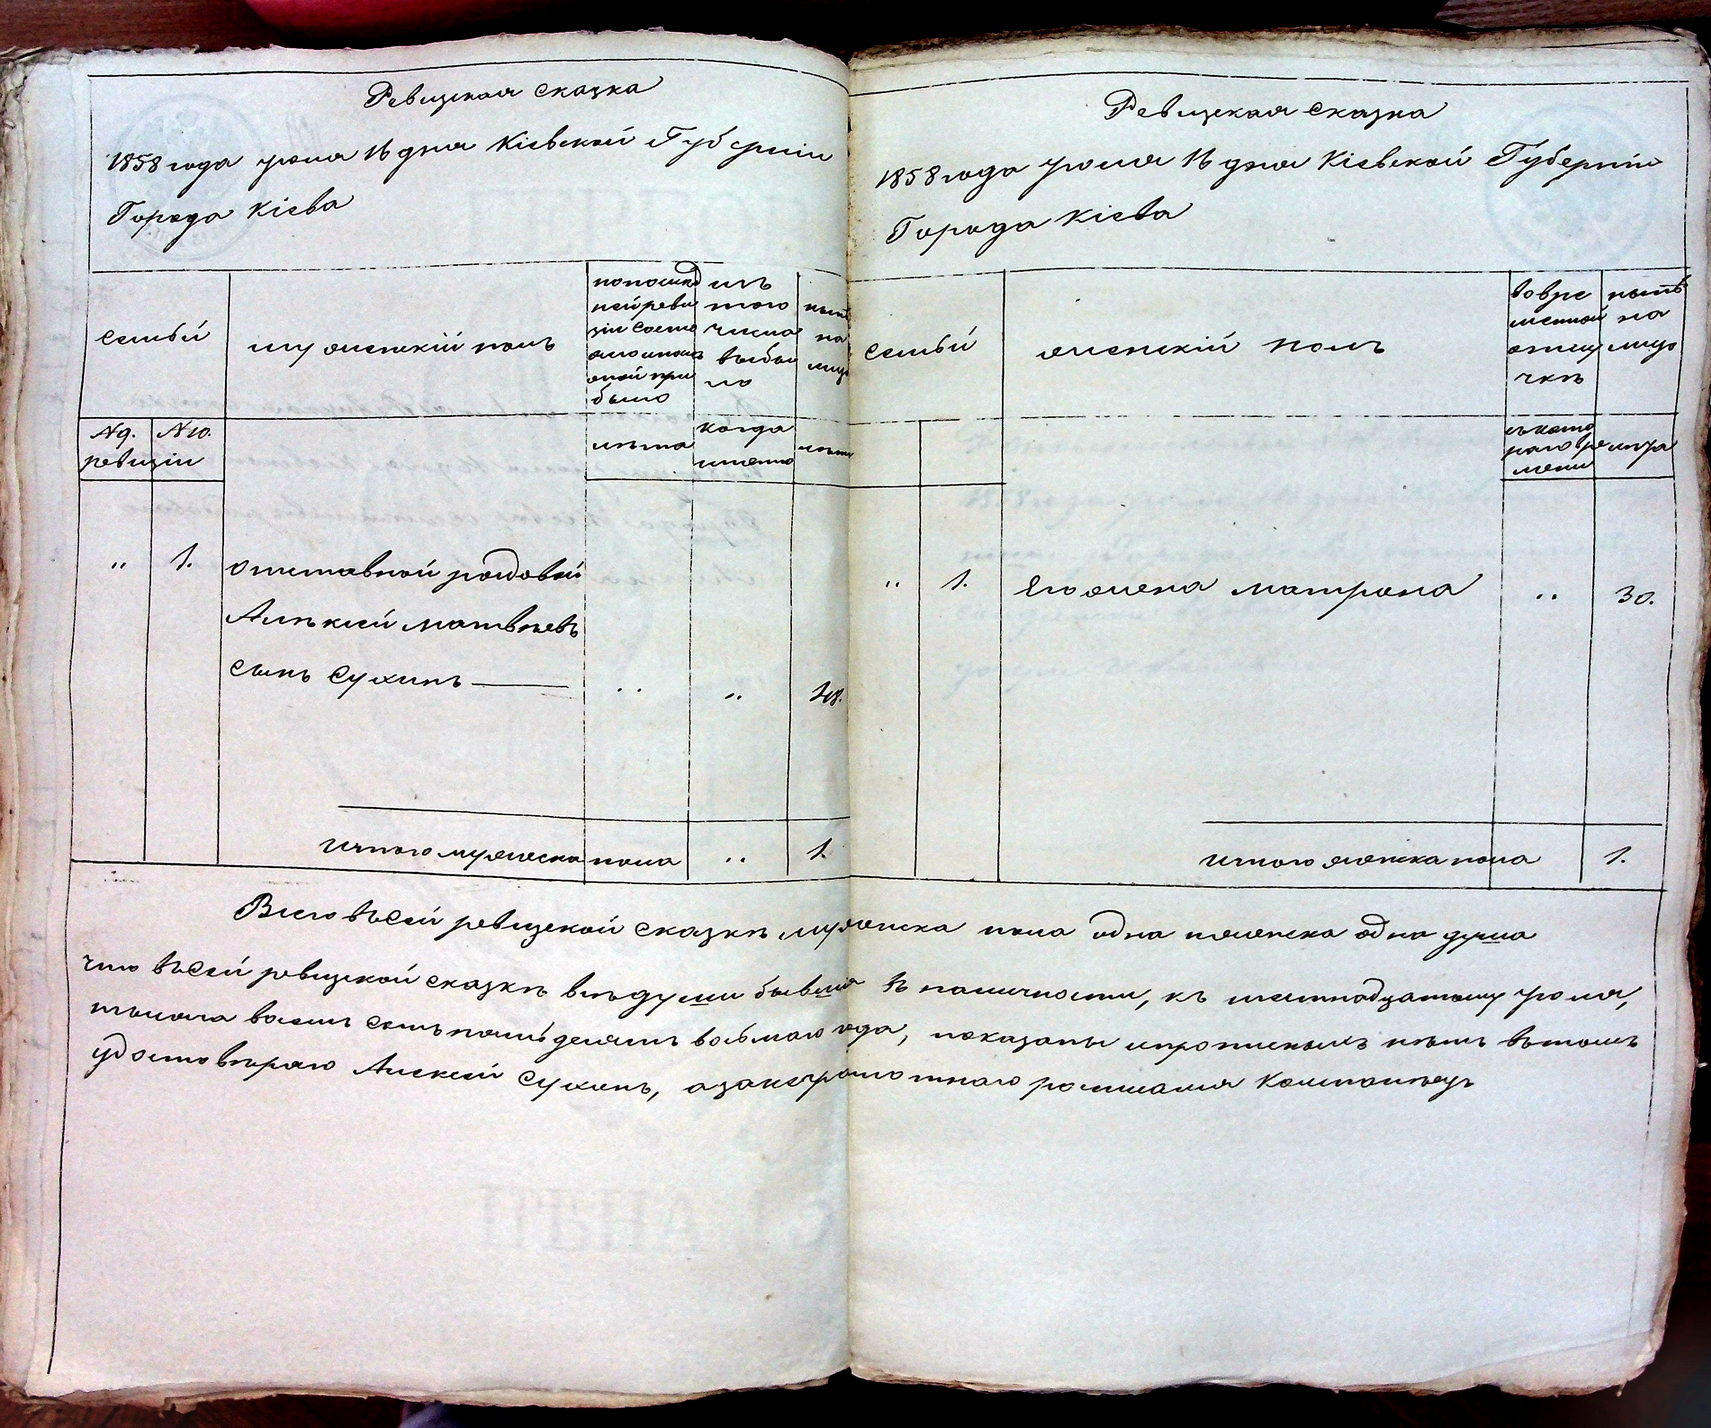 Ревизская сказка
1858 года июня 16 дня Кіевской Губерніи
Города Кіева
семьи
мужескій полъ
по послѣд
ней реви
зіи состо
яло и послѣ
оной при
было
изъ
того
числа
выбы
ло
нынѣ
на
лицо
№ 9. № 10.
ревизіи
лѣта
когда
именно
лѣта
„ 1. Отставной рядовой
Алѣксѣй Матвѣевъ
сынъ Сухинъ „ „ 48.
Итого мужеска пола „ 1.
Ревизская сказка
1858 года июня 16 дня Кіевской Губерніи
Города Кіева
семьи
женскій полъ
во вре
менной
отлу
чкѣ
нынѣ
на
лицо
съ кото
раго вре
мени
лѣта
„ 1. Его жена Матрона „ 30.
Итого женска пола 1.
Всего въ сей ревизской сказкѣ мужеска пола одна и женска одна душа
что въ сей ревизской сказкѣ всѣ души бывшія въ наличности, къ шестнадцатому июня,
тысяча восемь сотъ пятьдесятъ восьмого года, показаны и прописныхъ нѣтъ въ томъ
удостовѣряю Алексей Сухинъ, а за неграмотнаго росписался